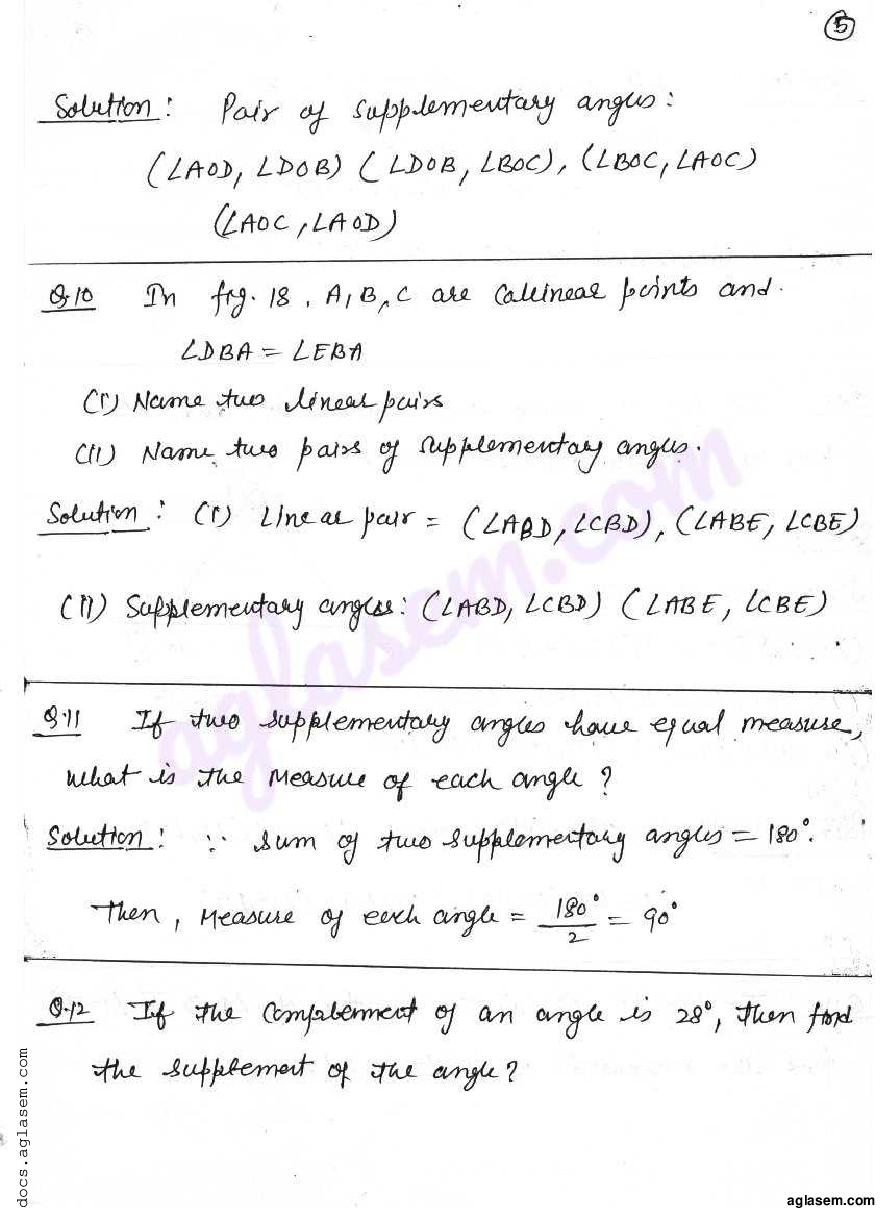 5
Solution: Pair of supplementary angles:
(∠AOD, ∠DOB) (∠DOB, ∠BOC), (∠BOC, ∠AOC)
(∠AOC, ∠AOD)
Q.10 In fig. 18, A, B, C are collinear points and.
∠DBA = ∠EBA
(i) Name two linear pairs
(ii) Name two pairs of supplementary angles.
Solution: (i) Linear pair = (∠ABD, ∠CBD), (∠ABE, ∠CBE)
(ii) Supplementary angles: (∠ABD, ∠CBD) (∠ABE, ∠CBE)
Q.11 If two supplementary angles have equal measure,
what is the measure of each angle?
Solution: ∵ sum of two supplementary angles = 180°.
Then, measure of each angle = 180°/2 = 90°
Q.12 If the complement of an angle is 28°, then find
the supplement of the angle?
aglasem.com
docs.aglasem.com
aglasem.com